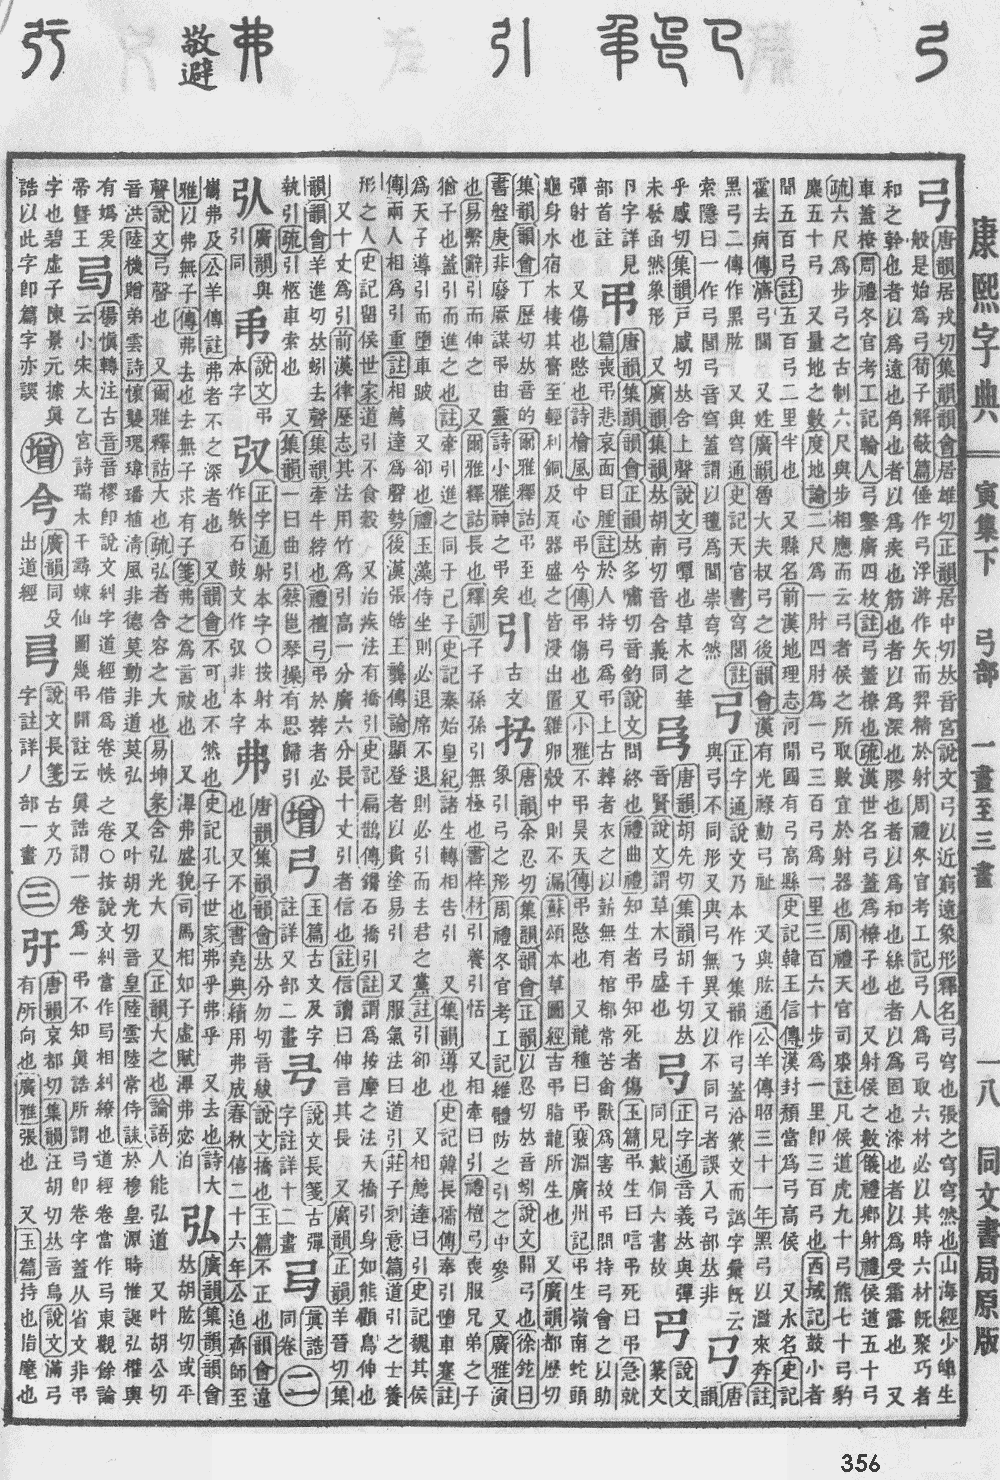 敬避
康熙字典 寅集下 弓部 一畫至三畫 一八 同文書局原版
弓 唐韻居戎切集韻韻會居雄切正韻居中切𠀤音宮說文弓以近窮遠象形釋名弓穹也張之穹穹然也山海經少皞生
般是始爲弓荀子解蔽篇倕作弓浮游作矢而羿精於射周禮冬官考工記弓人爲弓取六材必以其時六材旣聚巧者
和之幹也者以爲遠也角也者以爲疾也筋也者以爲深也膠也者以爲和也絲也者以爲固也漆也者以爲受霜露也 又
車蓋橑周禮冬官考工記輪人弓鑿廣四枚註弓蓋橑也疏漢世名弓蓋爲橑子也 又射侯之數儀禮鄕射禮侯道五十弓
疏六尺爲步弓之古制六尺與步相應而云弓者侯之所取數宜於射器也周禮天官司裘註凡侯道虎九十弓熊七十弓豹
麋五十弓 又量地之數度地論二尺爲一肘四肘爲一弓三百弓爲一里三百六十步爲一里卽三百弓也西域記鼓小者
聞五百弓註五百弓二里半也 又縣名前漢地理志河閒國有弓高縣史記韓王信傳漢封穨當爲弓高侯 又水名史記
霍去病傳濟弓閭 又姓廣韻魯大夫叔弓之後韻會漢有光祿勳弓祉 又與肱通公羊傳昭三十一年黑弓以濫來奔註
黑弓二傳作黑肱 又與穹通史記天官書穹閭註 弓 正字通說文乃本作乃集韻作弓蓋沿篆文而譌字彙旣云弓 唐
索隱曰一作弓閭弓音穹蓋謂以氊爲閭崇穹然 與弓不同形又與弓無異又以不同弓者誤入弓部𠀤非 韻
乎感切集韻戸感切𠀤含上聲說文弓嘾也草木之華 唐韻胡先切集韻胡千切𠀤 正字通音義𠀤與彈 說文
未發函然象形 又廣韻集韻𠀤胡南切音含義同 音賢說文謂草木弓盛也 同見戴侗六書故 篆文
卪字詳見 弔 唐韻集韻韻會正韻𠀤多嘯切音釣說文問終也禮曲禮知生者弔知死者傷玉篇弔生曰唁弔死曰弔急就
部首註 篇喪弔悲哀面目腫註於人持弓爲弔上古葬者衣之以薪無有棺椁常苦禽獸爲害故弔問持弓會之以助
彈射也 又傷也愍也詩檜風中心弔兮傳弔傷也又小雅不弔昊天傳弔愍也 又龍種曰弔裴淵廣州記弔生嶺南蛇頭
龜身水宿木棲其膏至輕利銅及瓦器盛之皆浸出置雞卵殻中則不漏蘇頌本草圖經吉弔脂龍所生也 又廣韻都歷切
集韻韻會丁歷切𠀤音的爾雅釋詁弔至也 引 唐韻余忍切集韻韻會正韻以忍切𠀤音蚓說文開弓也徐鉉曰
書盤庚非廢厥謀弔由靈詩小雅神之弔矣 古文 象引弓之形周禮冬官考工記維體防之引之中參 又廣雅演
也易繫辭引而伸之 又爾雅釋詁長也釋訓子子孫孫引無極也書梓材引養引恬 又相牽曰引禮檀弓喪服兄弟之子
猶子也蓋引而進之也註牽引進之同于己子史記秦始皇紀諸生轉相告引 又集韻導也史記韓長孺傳奉引墮車蹇註
爲天子導引而墮車跛 又卻也禮玉藻侍坐則必退席不退則必引而去君之黨註引卻也 又相薦達曰引史記魏其侯
傳兩人相爲引重註相薦達爲聲勢後漢張皓王龔傳論顯登者以貴塗易引 又服氣法曰道引莊子刻意篇道引之士養
形之人史記留侯世家道引不食穀 又治疾法有撟引史記扁鵲傳鑱石撟引註謂爲按摩之法夭撟引身如熊顧鳥伸也
又十丈爲引前漢律歷志其法用竹爲引高一分廣六分長十丈引者信也註信讀曰伸言其長 又廣韻正韻羊晉切集
韻韻會羊進切𠀤蚓去聲集韻牽牛綍也禮檀弓弔於葬者必 增 玉篇古文及字 說文長箋古彈 眞誥 二
執引疏引柩車索也 又集韻一曰曲引蔡邕琴操有思歸引 註詳又部二畫 字註詳十二畫 同卷
廣韻與 說文弔 正字通射本字○按射本 弗 唐韻集韻韻會𠀤分勿切音紱說文撟也玉篇不正也韻會違
引同 本字 也 又不也書堯典績用弗成春秋僖二十六年公追齊師至
巂弗及公羊傳註弗者不之深者也 又韻會不可也不然也史記孔子世家弗乎弗乎 又去也詩大 弘 廣韻集韻韻會
雅以弗無子傳弗去也去無子求有子箋弗之爲言祓也 又滭弗盛貌司馬相如子虛賦滭弗宓汨 𠀤胡肱切或平
聲說文弓聲也 又爾雅釋詁大也疏弘者含容之大也易坤彖含弘光大 又正韻大之也論語人能弘道 又叶胡公切
音洪陸機贈弟雲詩懷襲瑰瑋播植淸風非德莫勤非道莫弘 又叶胡光切音皇陸雲陸常侍誄於穆皇源時惟誕弘權輿
有嬀爰 楊愼轉注古音音樛卽說文糾字道經借爲卷帙之卷○按說文糾當作𢎧相糾繚也道經卷當作弓東觀餘論
帝曁王 云小宋太乙宮詩瑞木千尋竦仙圖幾弔開註云眞誥謂一卷爲一弔不知眞誥所謂弓卽卷字蓋从省文非弔
字也碧虛子陳景元據眞 增 廣韻同殳 說文長箋古文乃 三 唐韻哀都切集韻汪胡切𠀤音烏說文滿弓
誥以此字卽篇字亦誤 出道經 字註詳丿部一畫 有所向也廣雅張也 又玉篇持也
356